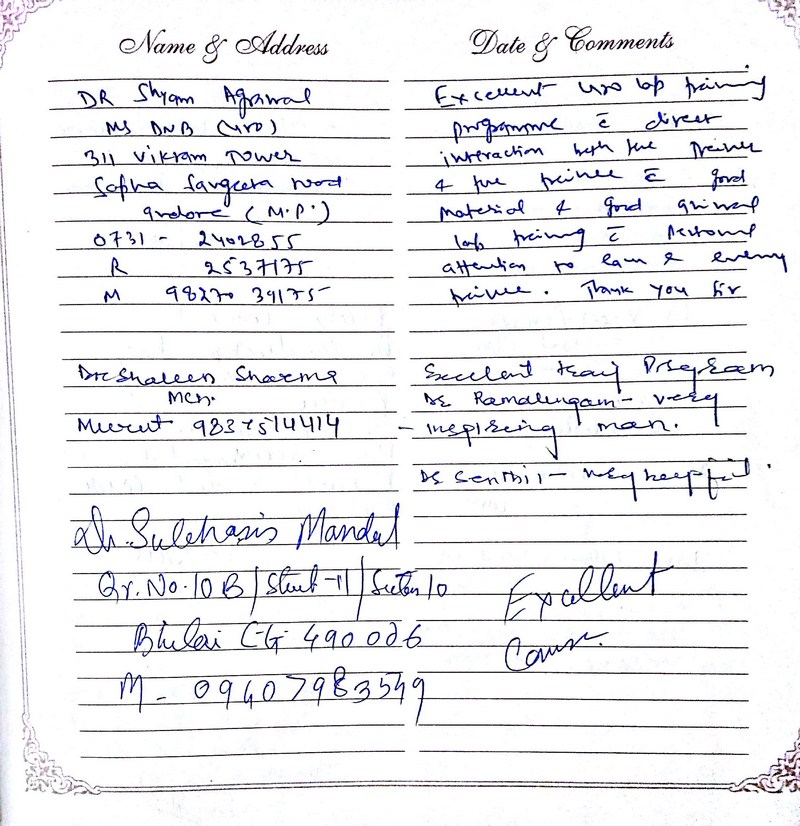 Name & Address
DR Shyam Agrawal
MS DNB (URO)
311 Vikram Tower
Sapna Sangeeta road
Indore (M.P.)
0731 - 2402855
R 2537175
M 98270 39175
Dr. Shaleen Sharma
MCh.
Meerut 9837514414
Dr. Subhasis Mandal
Qr. No. 10B/Street-11/Sector 10
Bhilai CG 490006
M - 09407983549
Date & Comments
Excellent uro lap training
programme c̄ direct
interaction with the trainer
& the trainee c̄ good
material & good animal
lap training c̄ personal
attention to each & every
trainee. Thank you Sir
Excellent Program
Dr Ramalingam - very
- inspiring man.
Dr Senthil - very helpful.
Excellent
Course.